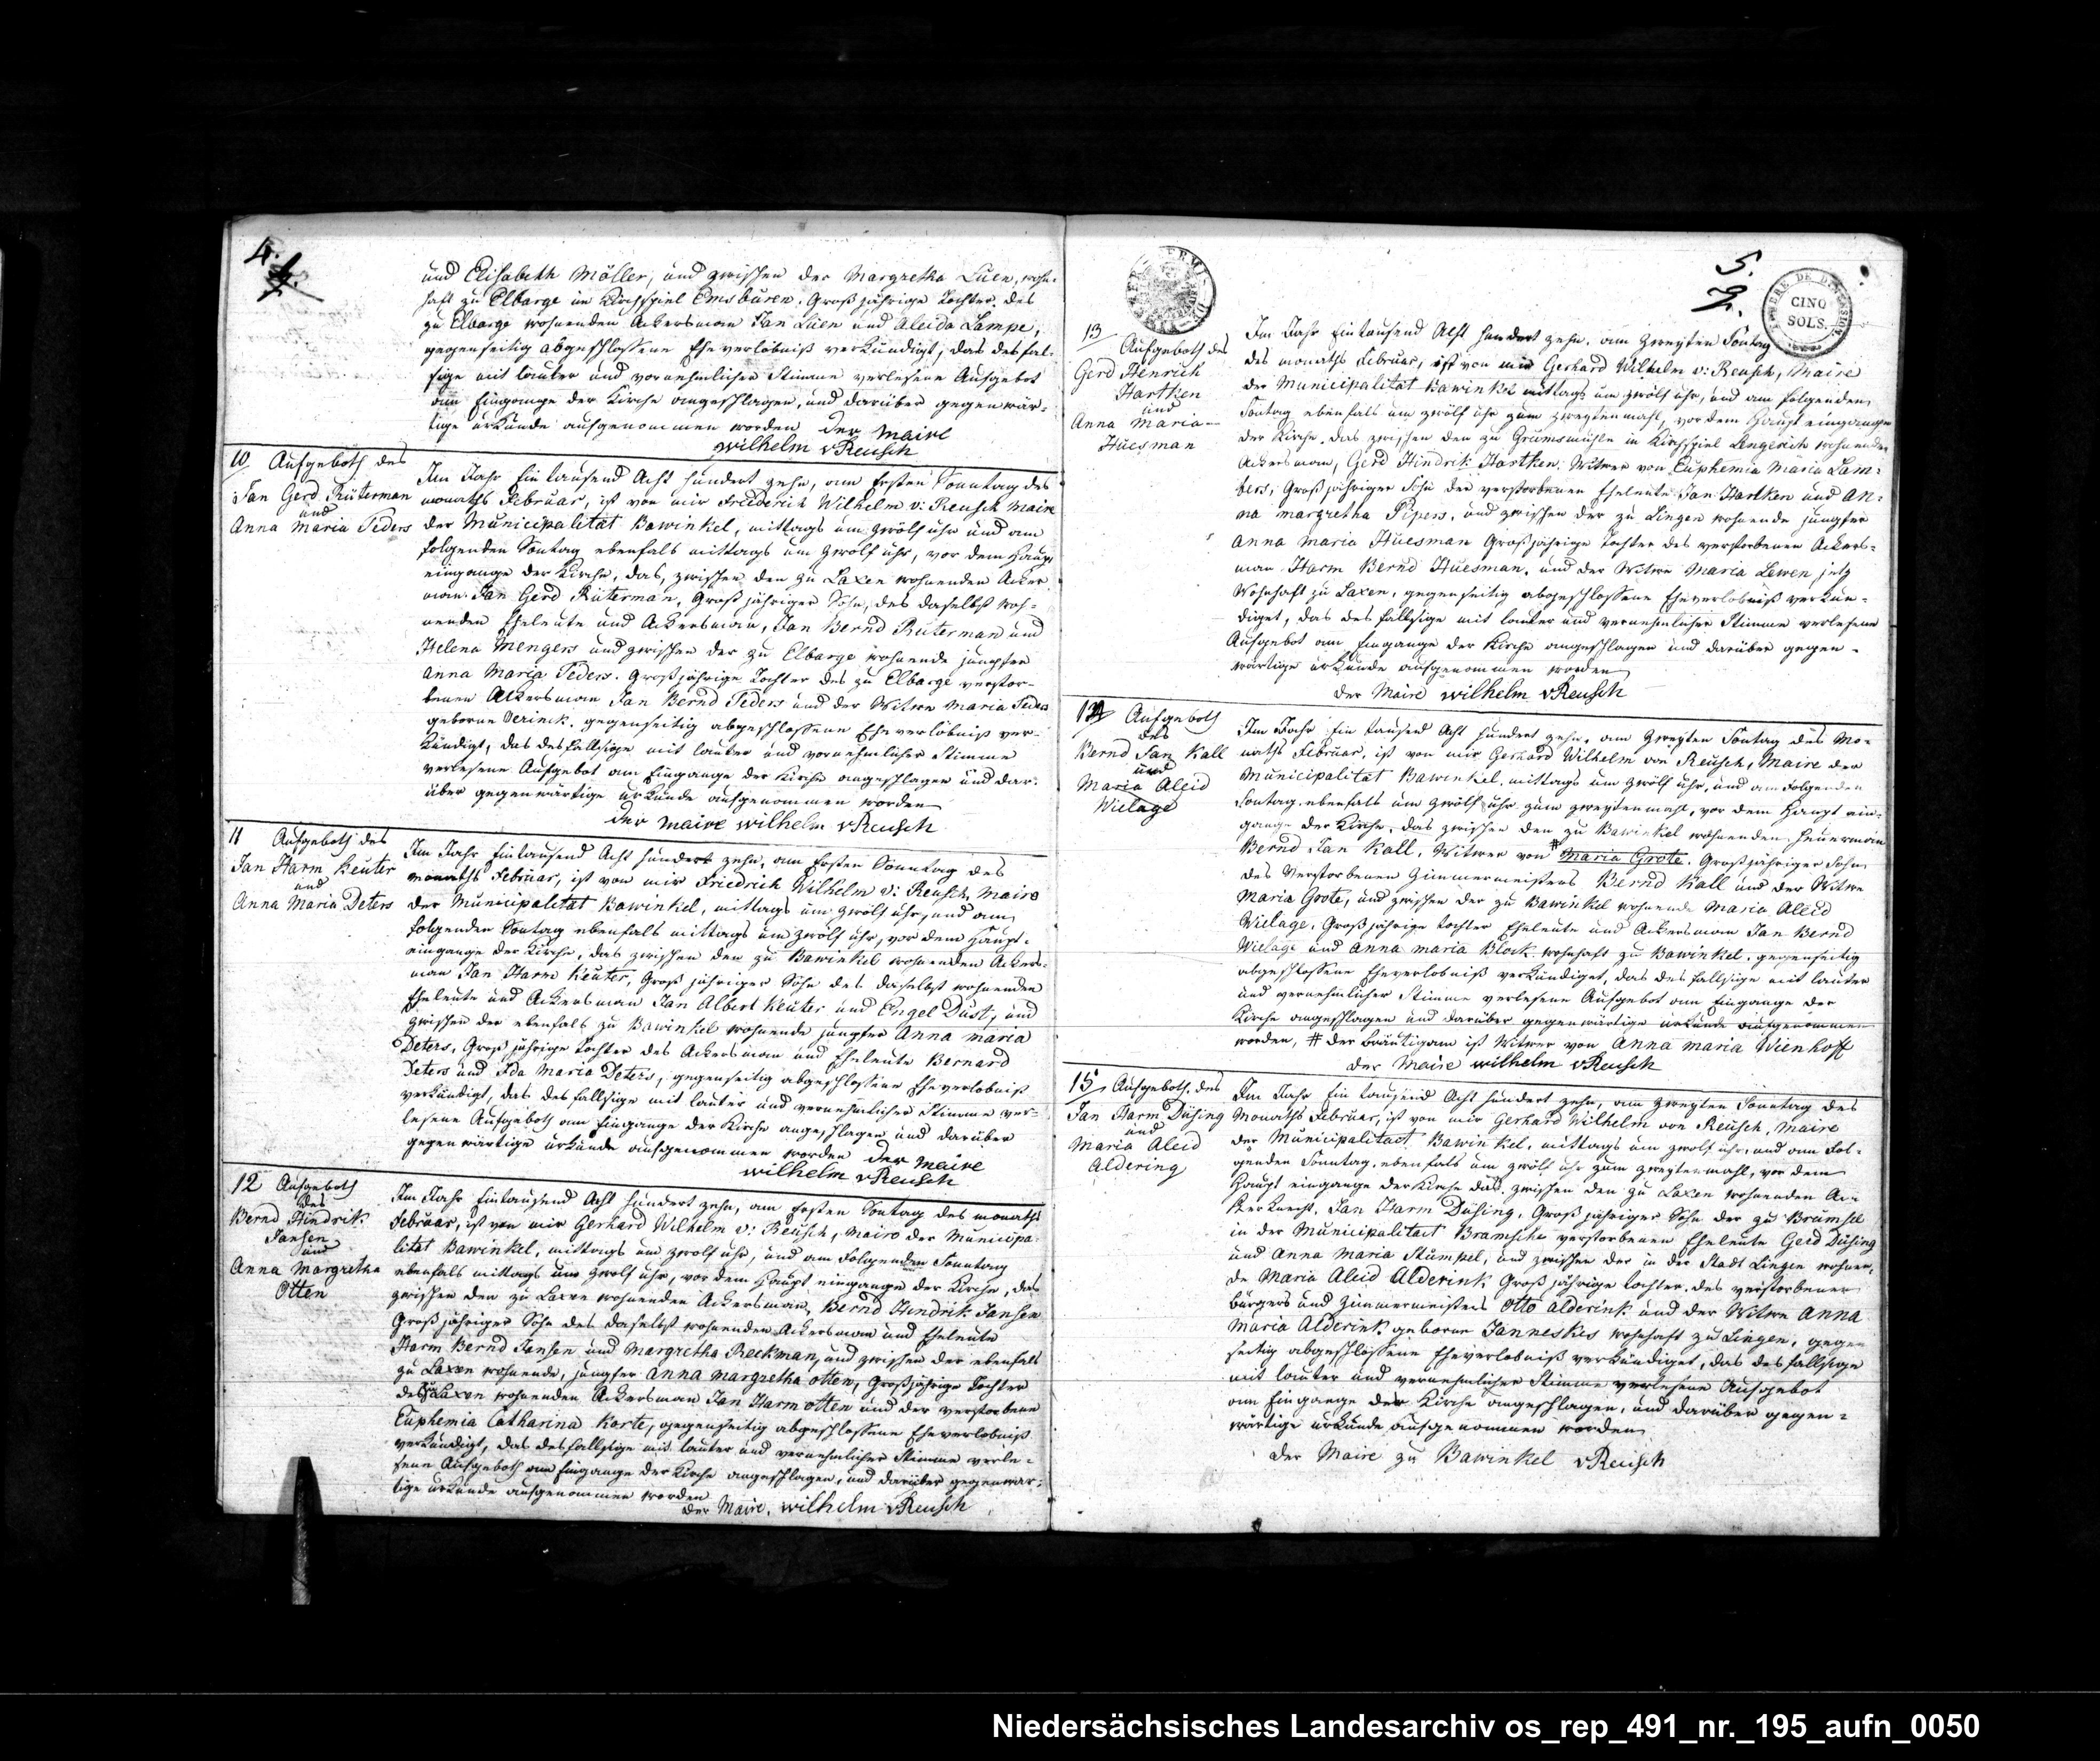 4.
und Elisabeth Möller, und zwischen der Margretha Luen, wohn-
haft zu Elbarge im Kirchspiel Emsbüren, Großjährige Tochter des
zu Elbarge wohnenden Ackersman Jan Luen und Aleida Lampe,
gegenseitig abgeschlossene Eheverlöbniß verkündigt, das desfal-
sige mit lauter und vornehmlicher Stimme verlesene Aufgebot
am Eingange der Kirche angeschlagen, und darüber gegenwär-
tige urkunde aufgenommen worden der maire
wilhelm vReusch
10 Aufgeboth des
Jan Gerd Rüterman
und
Anna Maria Peders
Im Jahr Eintausend Acht hundert zehn, am Ersten Sonntag des
monaths Februar, ist von mir Friederich Wilhelm v: Reusch Maire
der Municipalitat Bawinkel, mittags um zwölf uhr und am
folgenden Sontag ebenfals mittags um zwölf uhr, vor dem Haupt
eingange der Kirche, das, zwischen den zu Laxen wohnenden Acker
man Jan Gerd Rüterman, Großjähriger Sohn, des daselbst woh-
nenden Eheleute und Ackersman, Jan Bernd Rüterman und
Helena Mengers und zwischen der zu Elbarge wohnende jungfer
Anna Maria Peders. Großjährige Tochter des zu Elbarge verstor-
benen Ackersman Jan Bernd Peders und der Witwe Maria Peders
geborne Derinck. gegenseitig abgeschlossene Eheverlöbniß ver-
kündigt, das desfallsige mit lauter und vornehmlicher Stimme
verlesene Aufgebot am Eingange der Kirche angeschlagen und dar-
über gegenwärtige urkunde aufgenommen worden
der maire wilhelm vReusch
11 Aufgeboth des
Jan Harm Keuter
und
Anna Maria Deters
Im Jahr Eintausend Acht hundert zehn, am Ersten Sonntag des
monaths Februar, ist von mir Friedrich Wilhelm v: Reusch, Maire
der Municipalitat Bawinkel, mittags um zwölf uhr, und am
folgenden Sontag ebenfals mittags um zwölf uhr, vor dem Haupt-
eingange der Kirche, das zwischen den zu Bawinkel wohnenden Ackers-
man Jan Harm Keuter, Großjähriger Sohn des daselbst wohnenden
Eheleute und Ackersman Jan Albert Keuter und Engel Düst, und
zwischen der ebenfals zu Bawinkel wohnende jungfer Anna maria
Deters, Großjährige Tochter des Ackersman und Eheleute Bernard
Deters und Ida Maria Deters, gegenseitig abgeschlossene Eheverlobniß
verkündigt, das desfallsige mit lauter und vernehmlicher Stimme ver-
lesene Aufgeboth am Eingange der Kirche angeschlagen und darüber
gegenwärtige urkunde aufgenommen worden der maire
wilhelm vReusch
12 Aufgeboth
des
Bernd Hindrik
Jansen
und
Anna Margretha
Otten
Im Jahr Eintausend Acht hundert zehn, am Ersten Sontag des monaths
Februar, ist von mir Gerhard Wilhelm v: Reusch, Maire der Municipa-
litat Bawinkel, mittags um zwolf uhr, und am folgenden Sonntag
ebenfals mittags um zwolf uhr, vor dem Haupt eingange der Kirche, das
zwischen den zu Laxen wohnenden Ackersman, Bernd Hindrik Jansen
Großjähriger Sohn des daselbst wohnenden Ackersman und Eheleute
Harm Bernd Jansen und Margretha Reekman, und zwischen der ebenfals
zu Laxen wohnende, jungfer Anna Margretha Otten, Großjährige Tochter
des zu Laxen wohnenden Ackersman Jan Harm Otten und der verstorbene
Euphemia Catharina Korte, gegenseitig abgeschlossene Eheverlobniß
verkündigt, das desfallsige mit lauter und vernehmlicher Stimme verle-
sene Aufgeboth am Eingange der Kirche angeschlagen, und darüber gegenwär-
tige urkunde aufgenommen worden
der Maire, wilhelm vReusch
5.
CINQ
SOLS.
13
Aufgeboth des
Gerd Henrich
Hartken
und
Anna Maria
Huesman
Im Jahr Eintausend Acht hundert zehn, am zweyten Sontag
des monaths Februar, ist von mir Gerhard Wilhelm v: Reusch, Maire
der Municipalitat Bawinkel mittags um zwölf uhr, und am folgenden
Sontag ebenfals um zwölf uhr zum zweytenmahl, vor dem Haupt eingange
der Kirche, das zwischen den zu Grumsmühle in Kirchspiel Lengerich wohnenden
Ackersman, Gerd Hindrik Hartken, Witwer von Euphemia Maria Lam-
bers, Großjähriger Sohn der verstorbenen Eheleute Jan Hartken und An-
na margretha Pipers, und zwischen der zu Lingen wohnende jungfer
Anna Maria Huesman Großjährige Tochter des verstorbenen Ackers-
man Harm Bernd Huesman, und der Witwe Maria Lewen jetz
Wohnhaft zu Laxen, gegenseitig abgeschlossene Eheverlobniß verkün-
diget, das desfallsige mit lauter und vernehmlicher Stimme verlesene
Aufgebot am Eingange der Kirche angeschlagen und darüber gegen-
wärtige urkunde aufgenommen worden
der Maire wilhelm vReusch
14 Aufgeboth
des
Bernd Jan Kall
und
Maria Aleid
Wielage
Im Jahr Ein tausend Acht hundert zehn, am zweyten Sontag des Mo-
naths Februar, ist von mir Gerhard Wilhelm von Reusch, Maire der
Municipalitat Bawinkel, mittags um zwölf uhr, und am folgenden
Sontag, ebenfals um zwölf uhr zum zweytenmahl, vor dem Haupt ein-
gange der Kirche, das zwischen den zu Bawinkel wohnenden Heuerman
Bernd Jan Kall, Witwer von # Maria Grote. Großjähriger Sohn
des Verstorbenen Zimmermeisters Bernd Kall und der Witwe
Maria Grote, und zwischen der zu Bawinkel wohnende Maria Aleid
Wielage, Großjährige tochter Eheleute und Ackersman Jan Bernd
Wielage und Anna maria Block wohnhaft zu Bawinkel. gegenseitig
abgeschlossene Eheverlobniß verkündiget, das desfallsige mit lauter
und vernehmlicher Stimme verlesene Aufgebot am Eingange der
Kirche angeschlagen und darüber gegenwärtige urkunde aufgenommen
worden, # der Bräutigam ist Witwer von Anna maria Wienhoff
der Maire wilhelm vReusch
15 Aufgeboth des
Jan Harm Düsing
und
Maria Aleid
Aldering
Im Jahr Ein tausend Acht hundert zehn, am zweyten Sonntag des
Monaths Februar, ist von mir Gerhard Wilhelm von Reusch, Maire
der Municipalitaet Bawinkel, mittags um zwolf uhr, und am fol-
genden Sonntag, ebenfals um zwölf uhr zum zweytenmahl, vor dem
Haupt eingange der Kirche das, zwischen den zu Laxen wohnenden Ac-
kerknecht, Jan Harm Düsing, Großjähriger Sohn der zu Brümsel
in der Municipalitaet Bramsche verstorbenen Eheleute Gerd Düsing
und Anna Maria Stümpel, und zwischen der in der Stadt Lingen wohnen-
de Maria Aleid Alderink Großjährige tochter, des verstorbenen
Bürgers und Zimmermeisters Otto Alderink und der Witwe Anna
Maria Alderink geborne Janneskes wohnhaft zu Lingen, gegen
seitig abgeschlossene Eheverlobniß verkündiget, das desfallsige
mit lauter und vernehmlicher Stimme verlesene Aufgebot
am Eingange der Kirche angeschlagen, und darüber gegen-
wärtige urkunde aufgenommen worden
der Maire zu Bawinkel vReusch
Niedersächsisches Landesarchiv os_rep_491_nr._195_aufn_0050